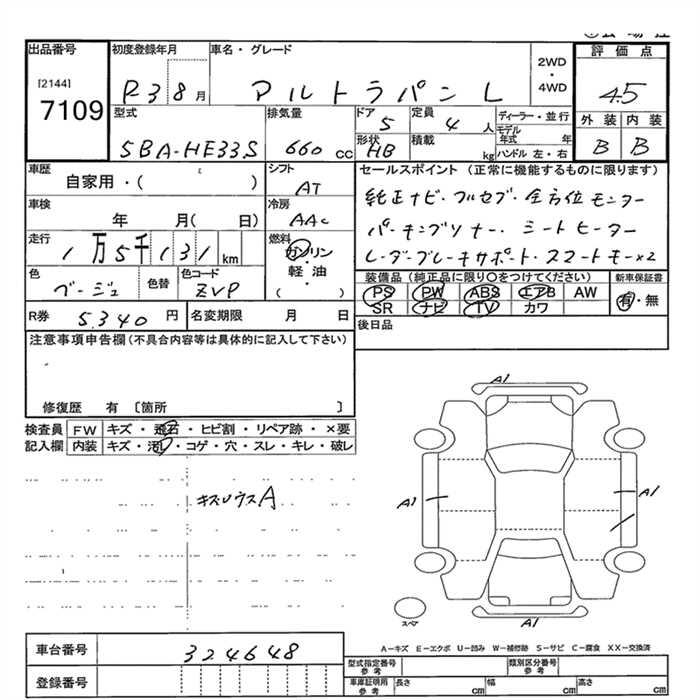 出品番号 初度登録年月 車名・グレード 評価点
[2144] 2WD・4WD
7109 R3 8月 アルトラパン L 4.5
型式 排気量 ドア 5 定員 4 人 ディーラー・並行 外装 内装
モデル年式 年
5BA-HE33S 660 cc 形状 HB 積載 kg ハンドル 左・右 B B
車歴 シフト セールスポイント (正常に機能するものに限ります)
自家用・( ) AT 純正ナビ・フルセブ・全方位モニター
車検 冷房
年 月( 日) AAC パーキングソナー・シートヒーター
走行 燃料
1万5千131km ガソリン レーダーブレーキサポート・スマートキー×2
軽・油
( )
色 色替 色コード 装備品 (純正品に限り〇をつけてください) 新車保証書
ベージュ ZVP PS PW ABS エアB AW 有・無
SR ナビ TV カワ
R券 5.340 円 名変期限 月 日 後日品
注意事項申告欄(不具合内容等は具体的に記入して下さい)
修復歴 有 〔箇所 〕
検査員 FW キズ・飛石・ヒビ割・リペア跡・×要
記入欄 内装 キズ・汚レ・コゲ・穴・スレ・キレ・破レ
A1
キズ ウス A
A1
A1
A1
スペア
A-キズ E-エクボ U-凹み W-補修跡 S-サビ C-腐食 XX-交換済
車台番号 324648
型式指定番号 参考 類別区分番号 参考
登録番号 車庫証明用 参考 長さ cm 幅 cm 高さ cm